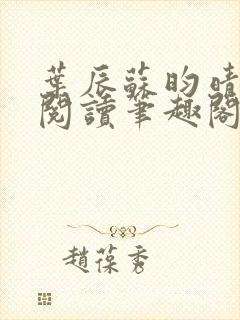 葉辰蘇昀晴
閱讀筆趣閣
趙葆秀